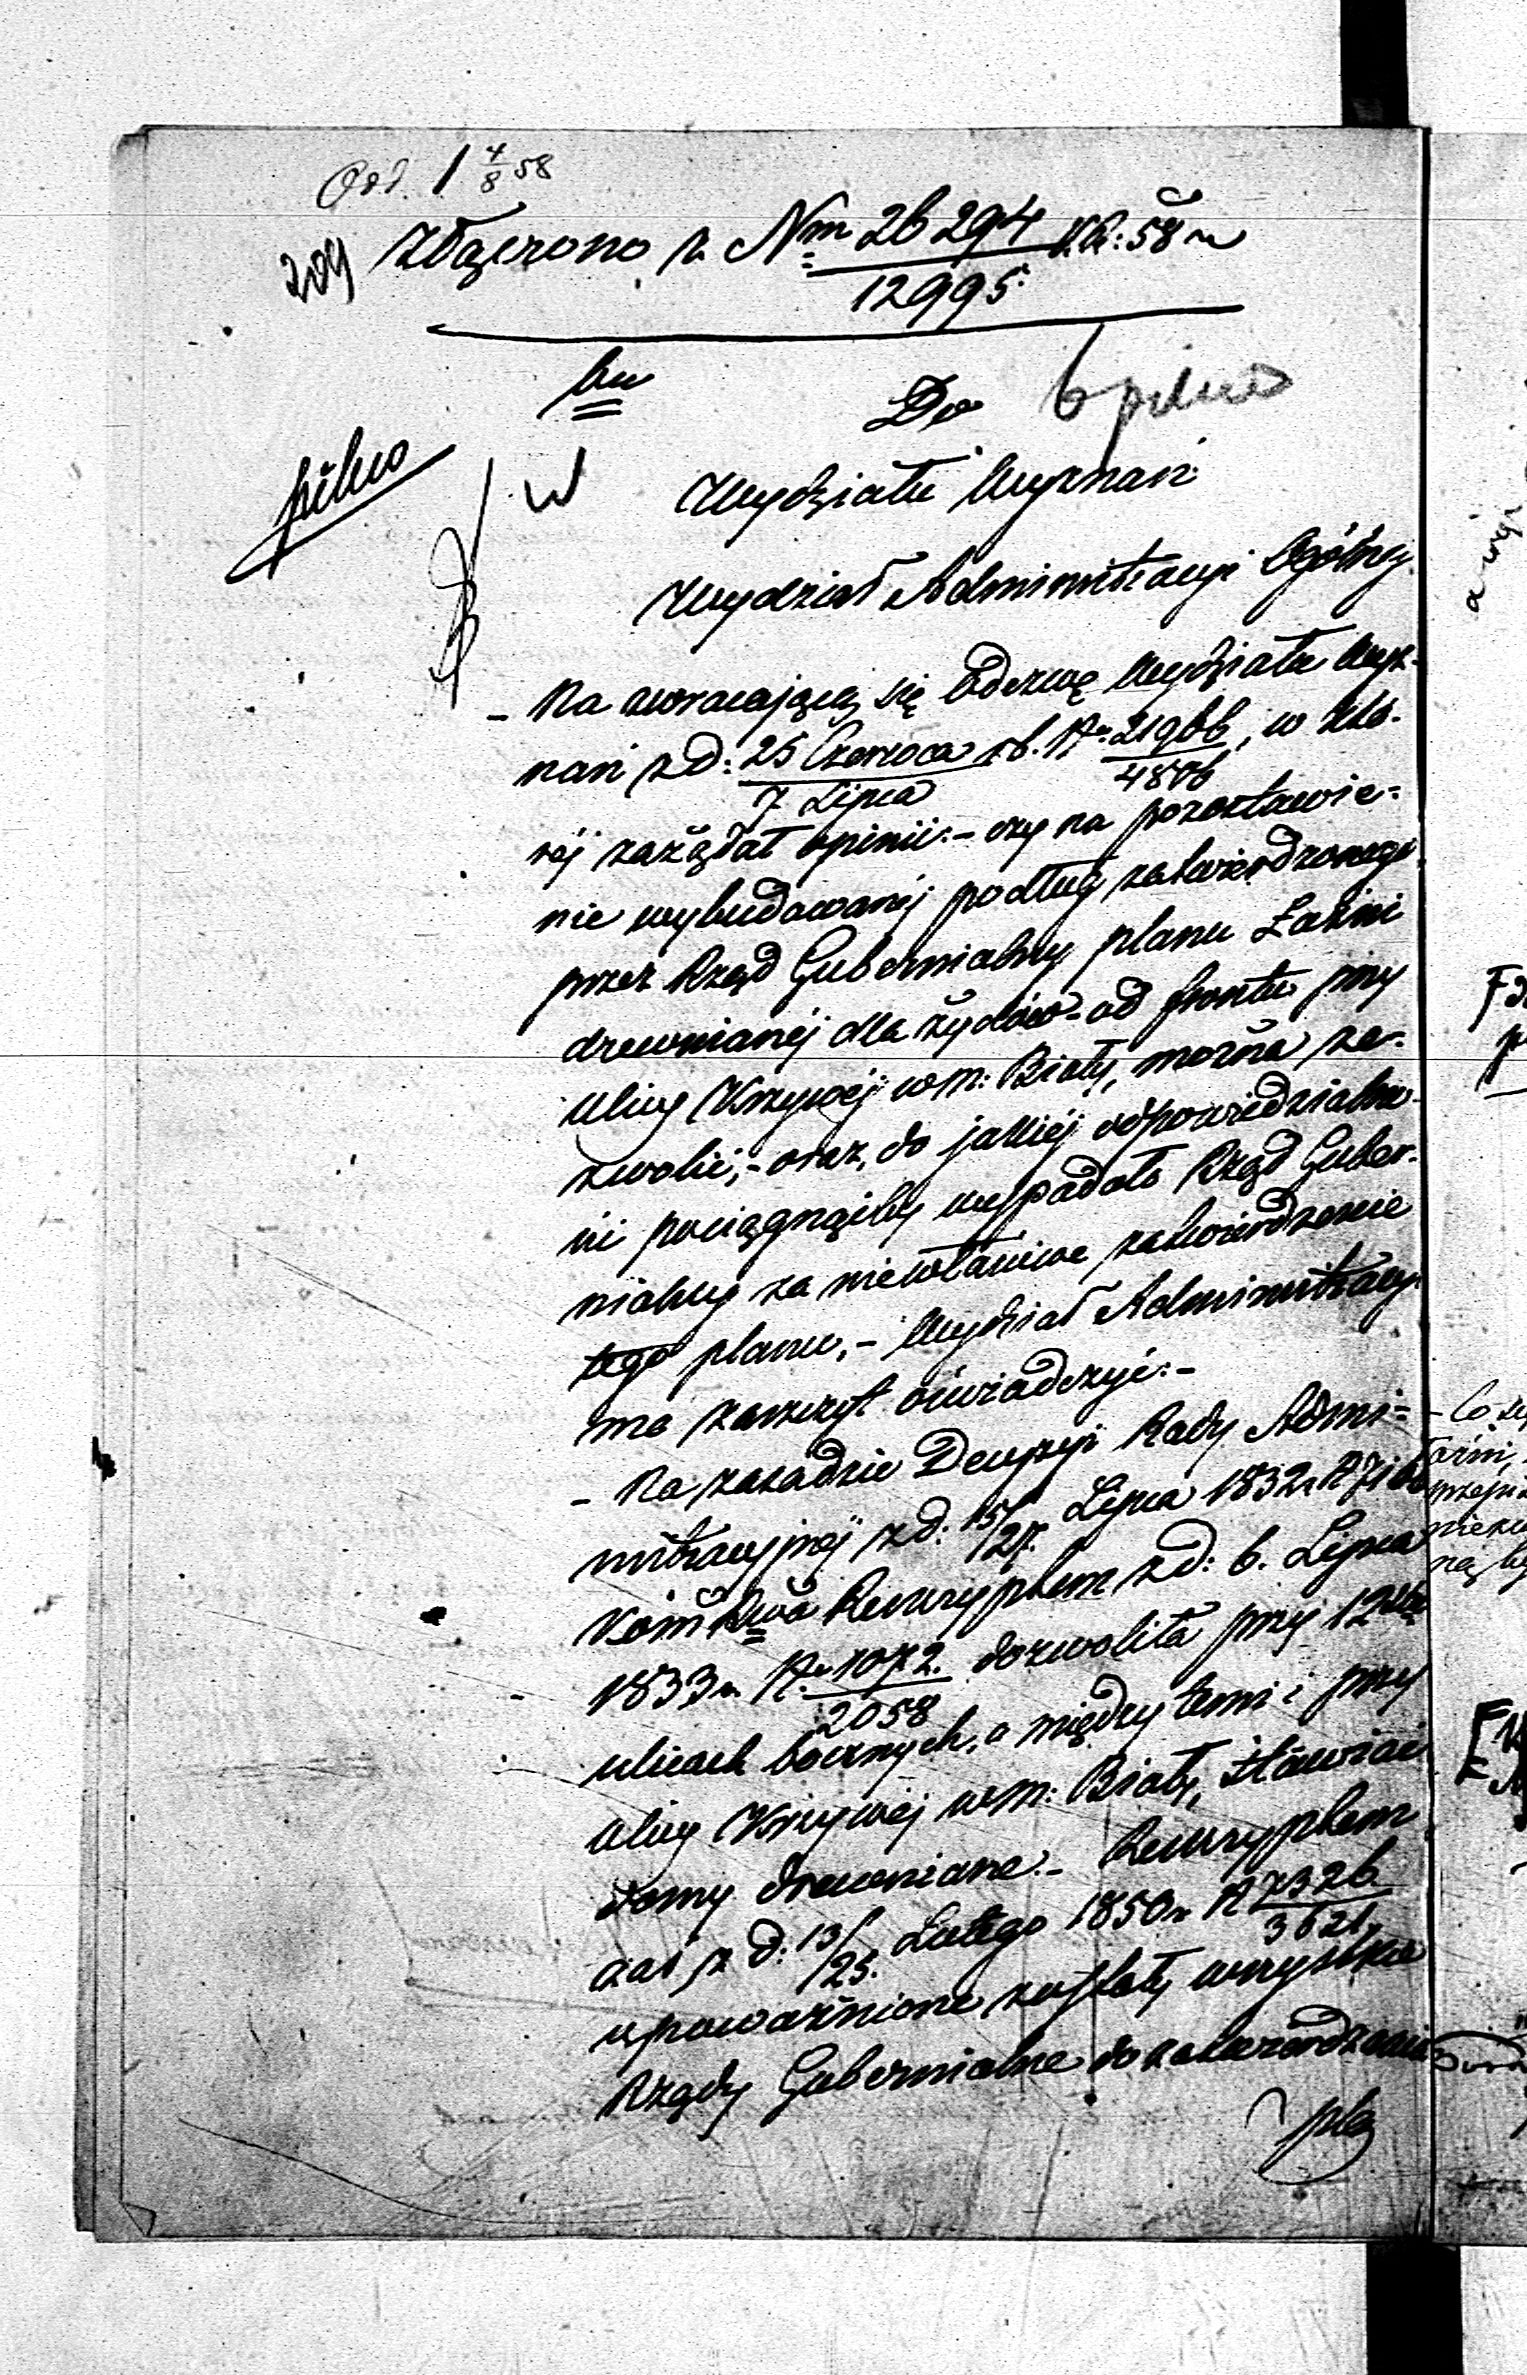 Odd. 1 4/8 58
209 Złączono z Nm 26294/12995 KR: 58 r
bu
Do
pilno
pilno
W
Wydziału Wyznań
Wydział Administracyi Ogólnej
- Na zwracającą się Odezwę Wydziału Wyz-
nań z d: 25 Czerwca/7 Lipca r.b. Nr 21966/4806, w któ-
réj zażądał opinii:- czy na pozostawie-
nie wybudowanéj podług zatwierdzonego
przez Rząd Gubernialny planu Łaźni
drewnianéj dla żydów- od frontu przy
ulicy Krzywéj w m: Biały, można ze-
zwolić,- oraz, do jakiéj odpowiedzialno-
ści pociągnąćby wypadało Rząd Guber-
nialny za niewłaściwe zatwierdzenie
tego planu,- Wydział Administracy:
ma zaszczyt oświadczyć:-
- Na zasadzie Decyzyi Rady Admi-
nistracyjnéj z d: 15/27. Lipca 1832 r. N
Kom: Rwa Reskryptem z d: 6. Lipca
1833 r. Nr 1072./2058 dozwoliła przy 12stu
ulicach bocznych, a między temi i przy
ulicy Krzywéj w m: Biały, stawiać
domy drewniane.- Reskryptem
zaś z d: 13/25. Lutego 1850 r. N 7326/3621,
upoważnione zostały wszystkie
Rządy Gubernialne do zatwierdzania
pla